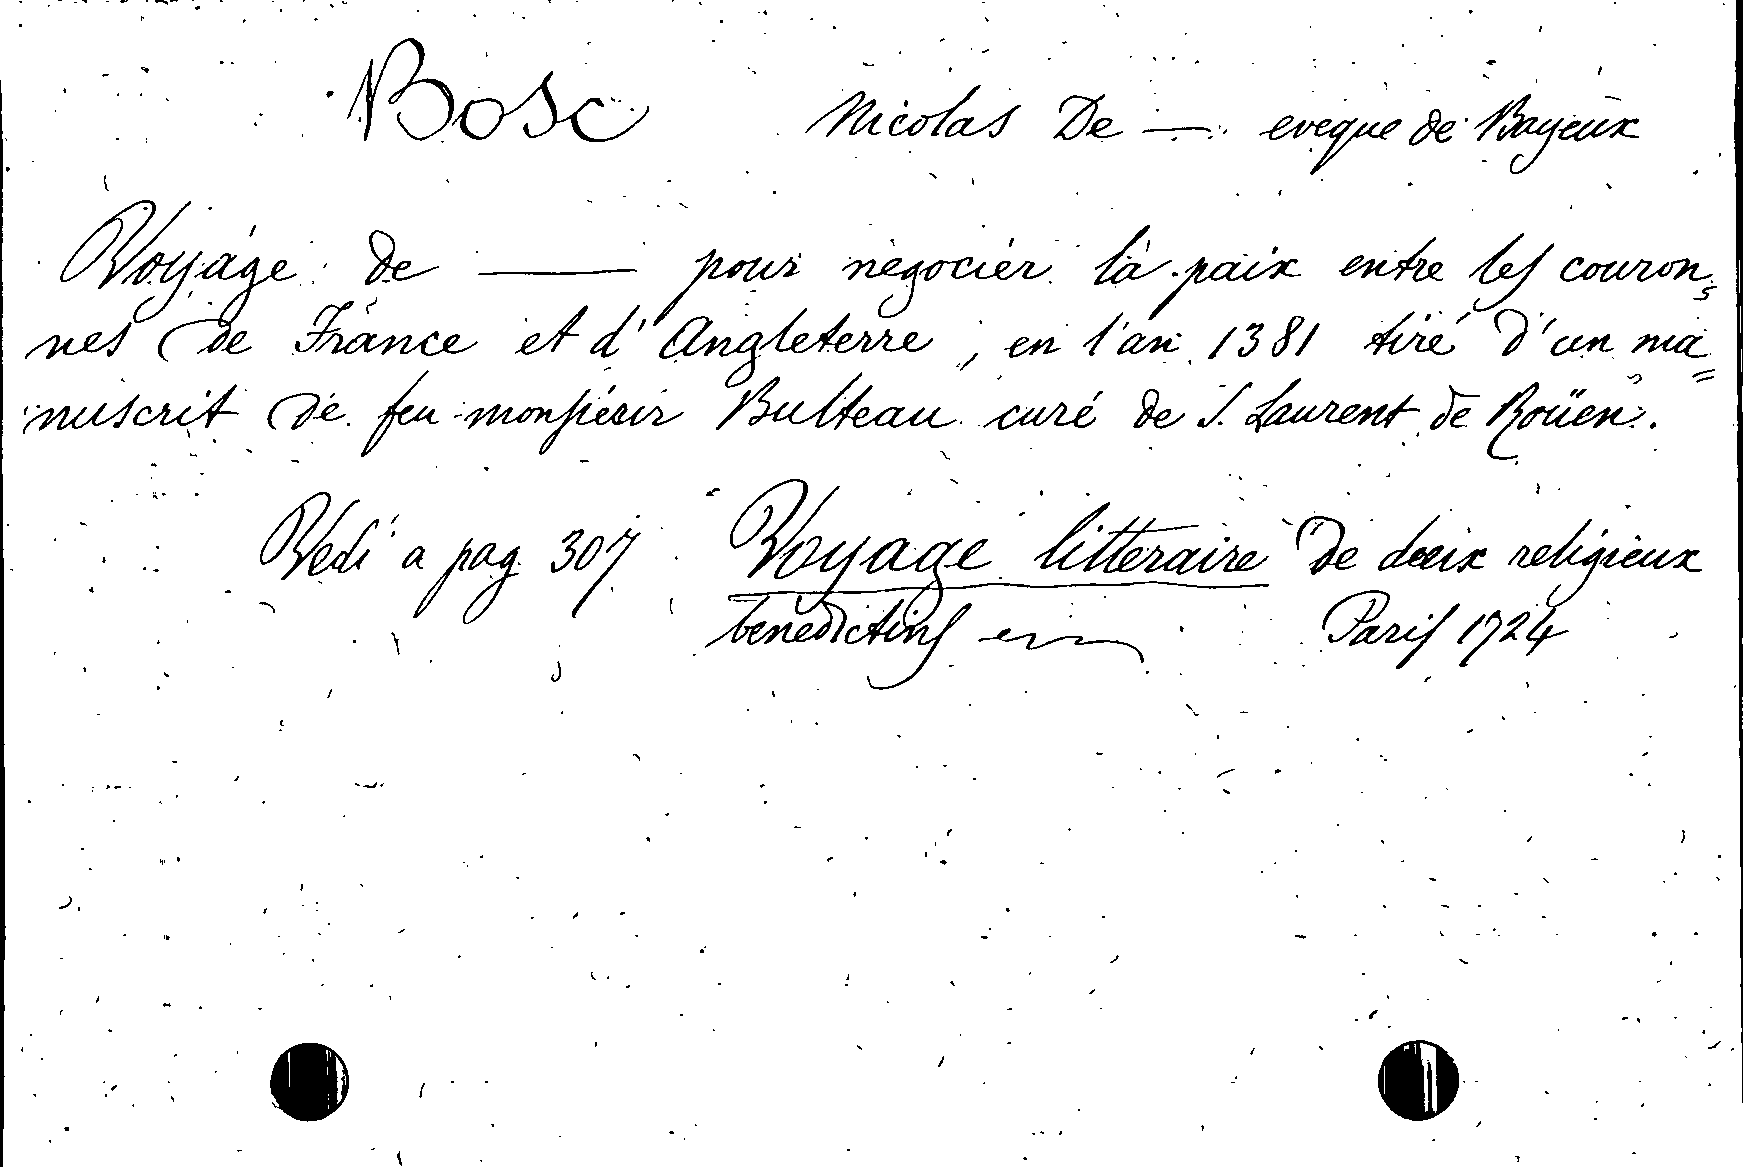 Bosc Nicolas De — eveque de Bayeux
Voyage de — pour negocier la paix entre les couron=
nes de France et d'Angleterre, en l'an 1381 tiré d'un ma=
nuscrit de feu monsieur Bulteau curé de S. Laurent de Roüen.
Vedi a pag 307 Voyage litteraire de deux religieux
benedictins Paris 1724